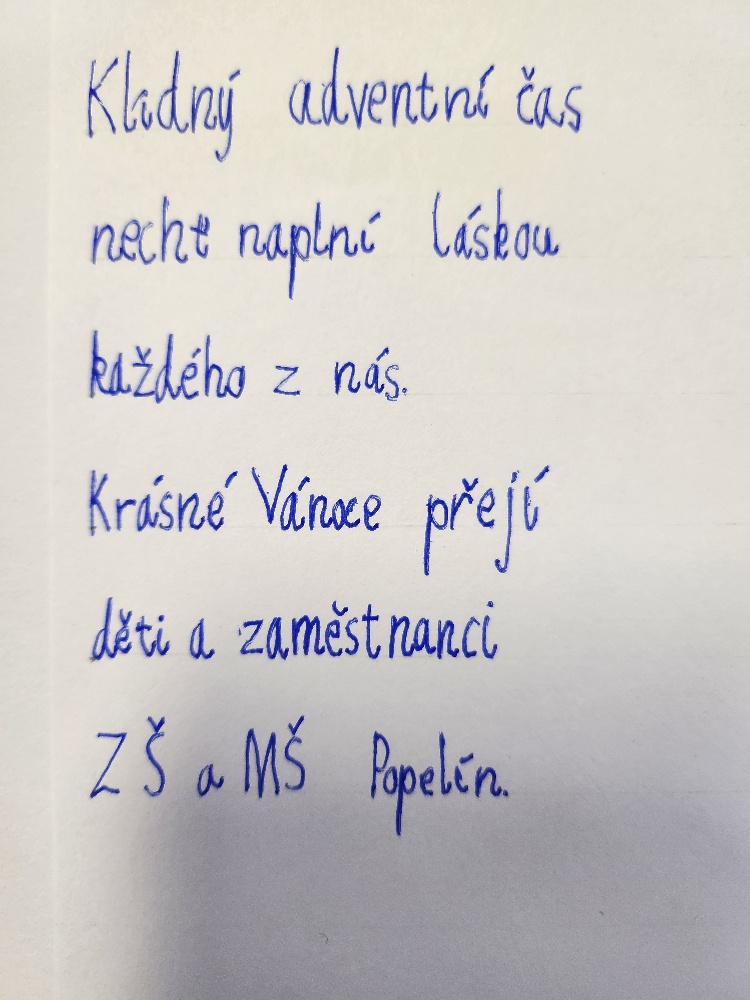 Kladný adventní čas
nechť naplní láskou
každého z nás.
Krásné Vánoce přejí
děti a zaměstnanci
ZŠ a MŠ Popelín.